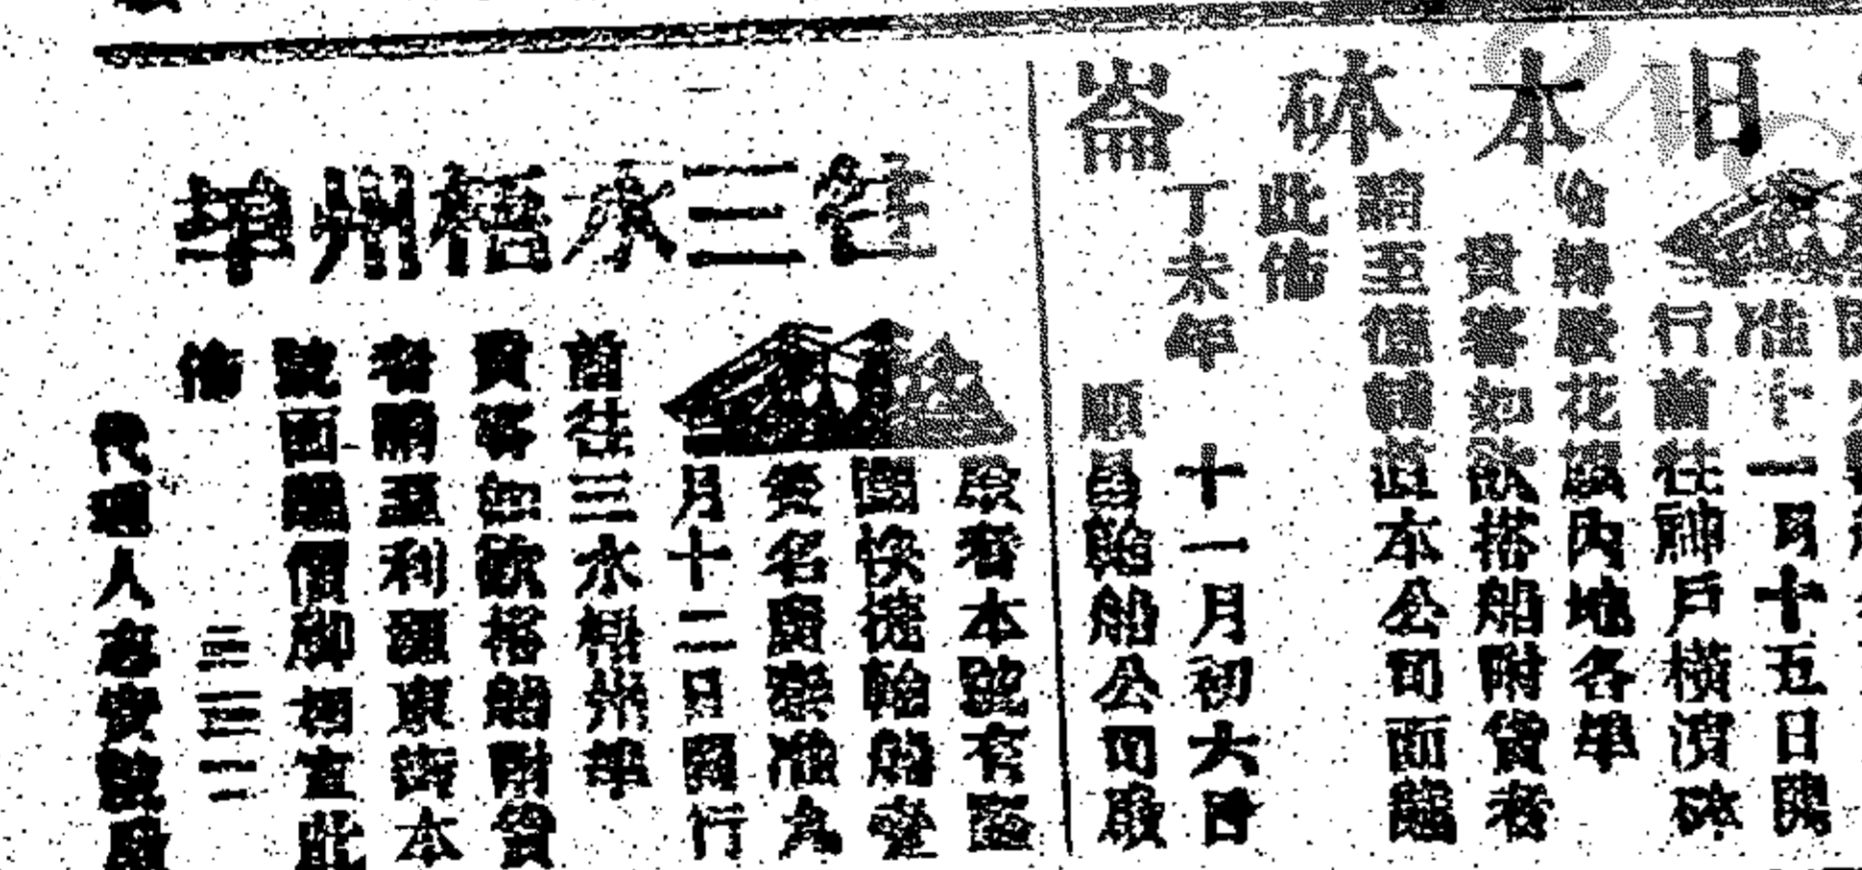 日本砵崙
准十一月十五日開
行前往神戶橫濱砵
崙轉駁花旗內地各埠
貴客如欲搭船附貨者
請至德輔道本公司面議
此佈
丁未年 十一月初六日
順昌輪船公司啟
往三水梧州埠
啟者本號有
快捷輪船壹
名廣泰准
月十二日開行
前往三水梧州埠
貴客如欲搭船附貨
者請至利源東街本
號面議價腳相宜此
佈
三三二
代理人 安號啟